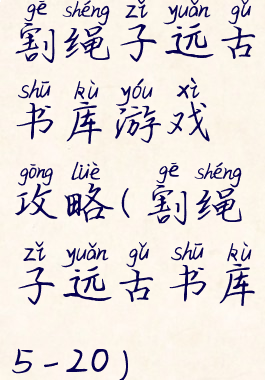 gē shéng zǐ yuǎn gǔ
割绳子远古
shū kù yóu xì
书库游戏
gōng lüè gē shéng
攻略(割绳
zǐ yuǎn gǔ shū kù
子远古书库
5-20)